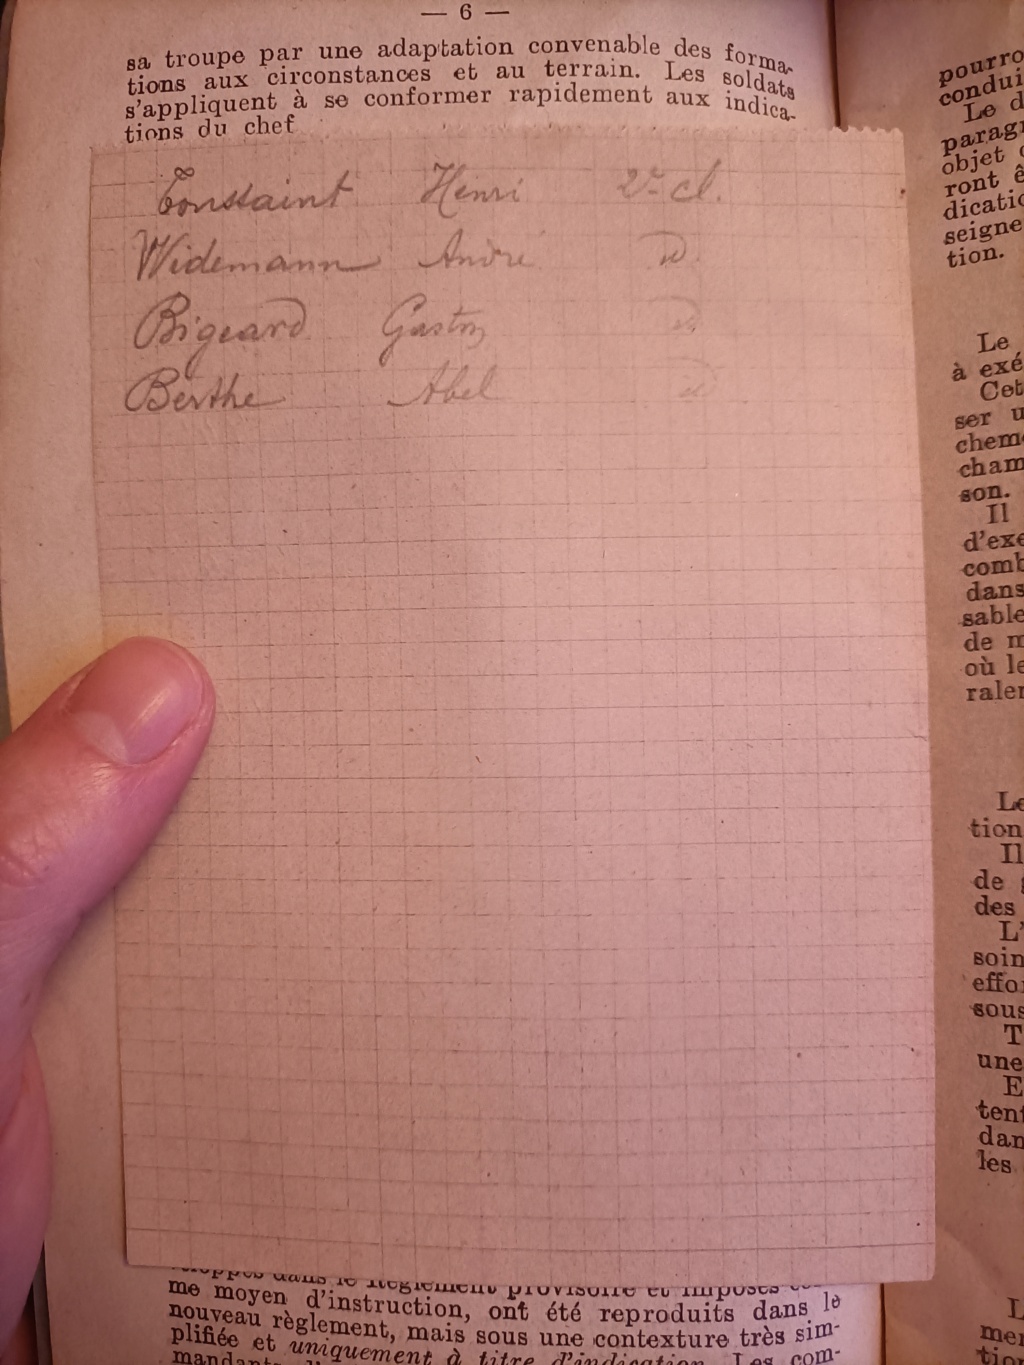 — 6 —
sa troupe par une adaptation convenable des forma-
tions aux circonstances et au terrain. Les soldats
s'appliquent à se conformer rapidement aux indica-
tions du chef
Toussaint Henri 2e cl.
Widemann André d°
Bigeard Gaston d°
Berthe Abel d°
dans le Règlement provisoire et imposés
me moyen d'instruction, ont été reproduits dans le
nouveau règlement, mais sous une contexture très sim-
plifiée et uniquement à titre d'indication. Les com-
pourro
condui
Le d
paragr
objet
ront ê
dicatio
seigne
tion.
Le
à exé
Cet
ser u
cheme
cham
son.
Il
d'exe
comb
dans
sable
de m
où le
raler
Le
tion
Il
de
des
L'
soin
effor
sous
T
une
E
tent
dan
les
L
mer
tio